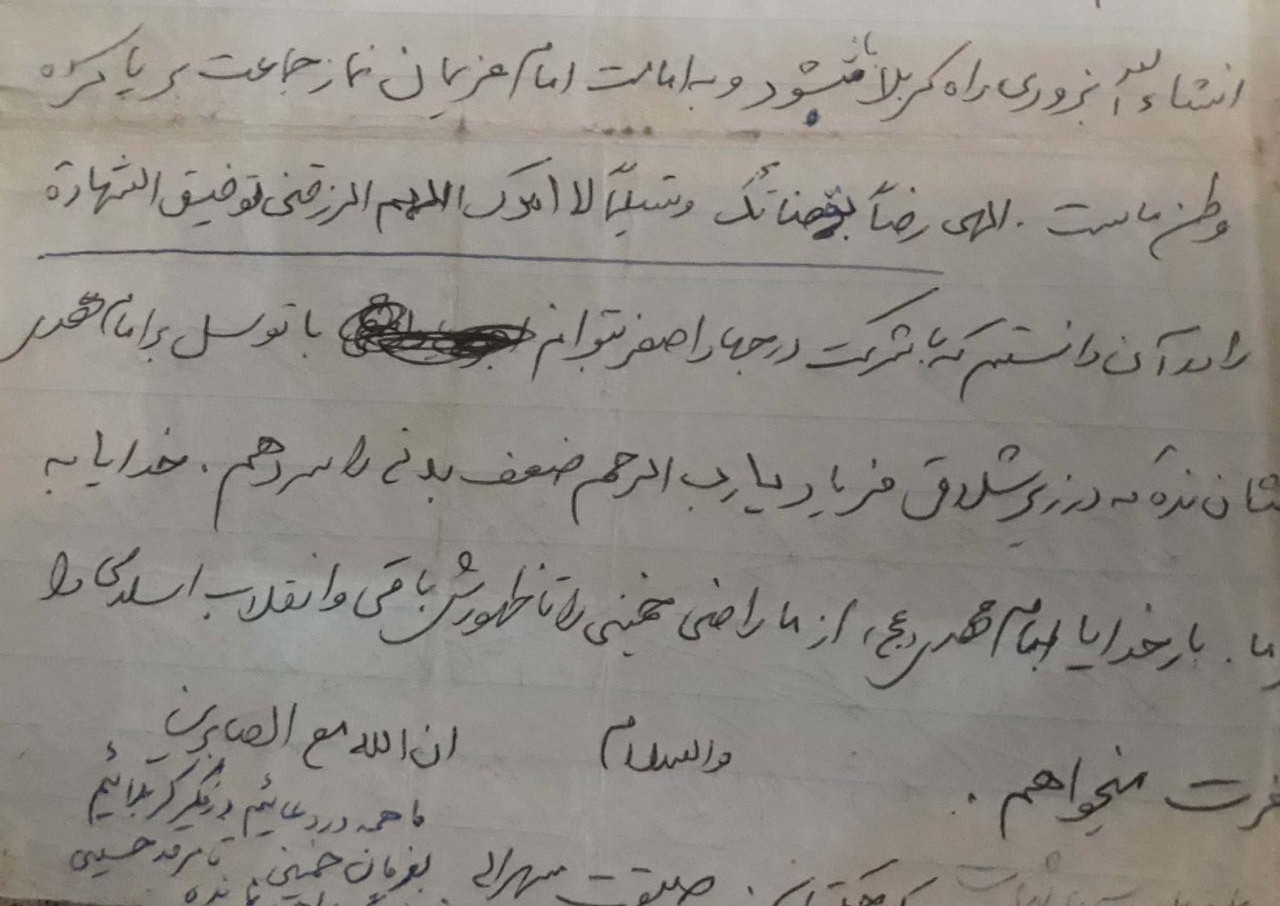 انشاءالله بزودی راه کربلا باز میشود و به امامت امام عزیزمان نماز جماعت بر پا کرده
وطن ماست . الهی رضاً بقضائک و تسلیماً لامرک اللهم الرزقنی توفیق الشهادة
را بر آن دانستم که با شرکت در جهاد اصغر بتوانم با توسل بر امام مهدی
نشان نده که در زیر شلاق فریاد یارب الرحم ضعف بدنی را سر دهم . خدایا به
ما . بار خدایا امام مهدی (عج) از ما راضی خمینی را تا ظهورش باقی و انقلاب اسلامی را
میخواهم . والسلام ان الله مع الصابرین
ما همه در دعائیم در فکر کربلائیم
بفرمان خمینی تا مرقد حسینی